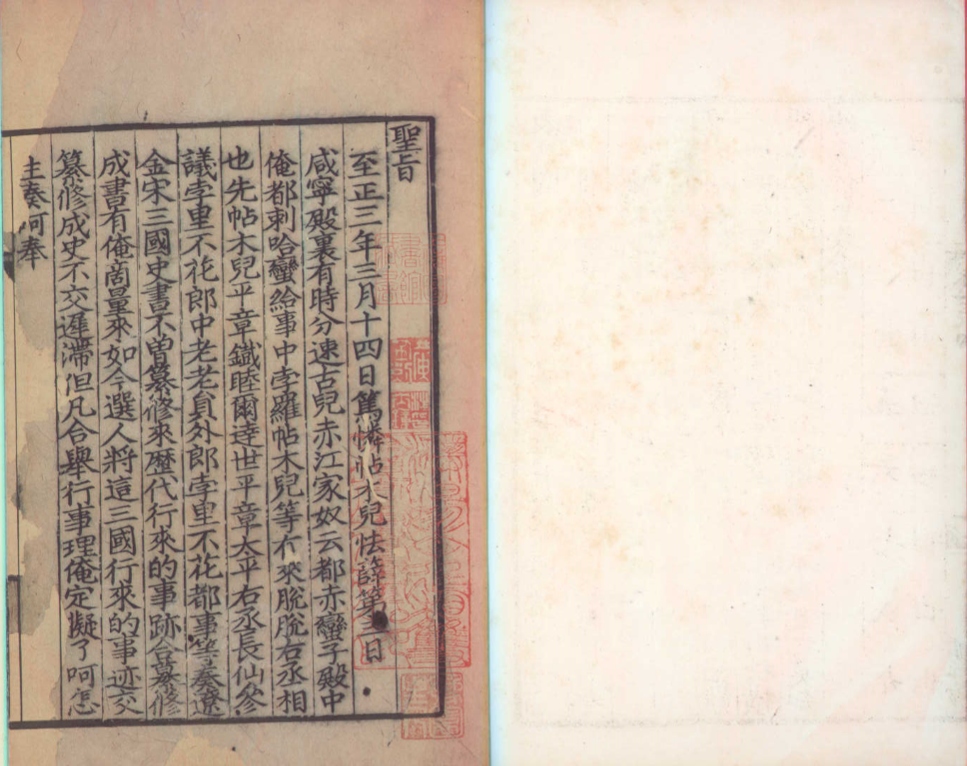 聖旨
至正三年三月十四日篤憐帖木兒怯薛第三日
咸寧殿裏有時分速古兒赤江家奴云都赤蠻子殿中
俺都剌哈蠻給事中孛羅帖木兒等有來脫脫右丞相
也先帖木兒平章鐡睦爾逹世平章太平右丞長仙參
議孛里不花郎中老老員外郎孛里不花都事等奏遼
金宋三國史書不曽纂修來歷代行來的事跡合纂修
成書有俺商量來如今選人將這三國行來的事迹交
纂修成史不交遲滯但凡合舉行事理俺定擬了呵怎
生奏呵奉